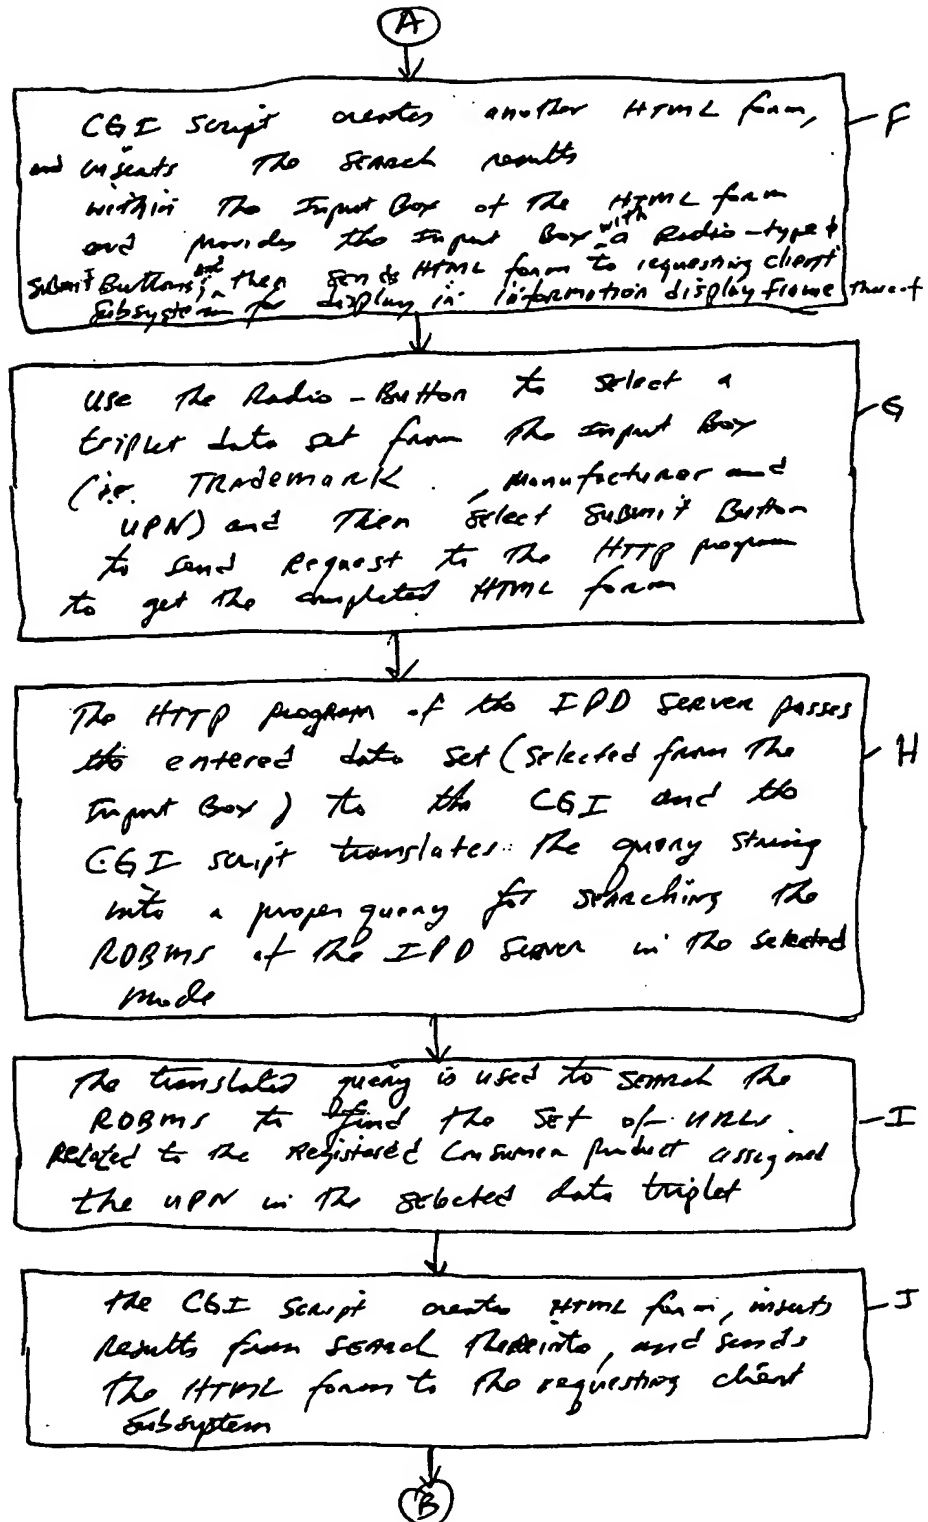 A
CGI Script creates another HTML form,
and inserts the search results
within the Input Box of the HTML form
and provides the Input Box with a Radio-type &
Submit Buttons, and then sends HTML form to requesting client
subsystem for display in information display frame thereof
F
Use the Radio-Button to select a
triplet data set from the Input Box
(i.e. Trademark, Manufacturer and
UPN) and then select Submit Button
to send Request to the HTTP program
to get the completed HTML form
G
The HTTP program of the IPD Server passes
the entered data set (selected from the
Input Box) to the CGI and the
CGI script translates the query string
into a proper query for searching the
RDBMS of the IPD Server in the selected
mode
H
The translated query is used to search the
RDBMS to find the set of URLs
Related to the Registered Consumer product assigned
the UPN in the selected data triplet
I
the CGI Script creates HTML form, inserts
Results from search thereinto, and sends
the HTML form to the requesting client
subsystem
J
B